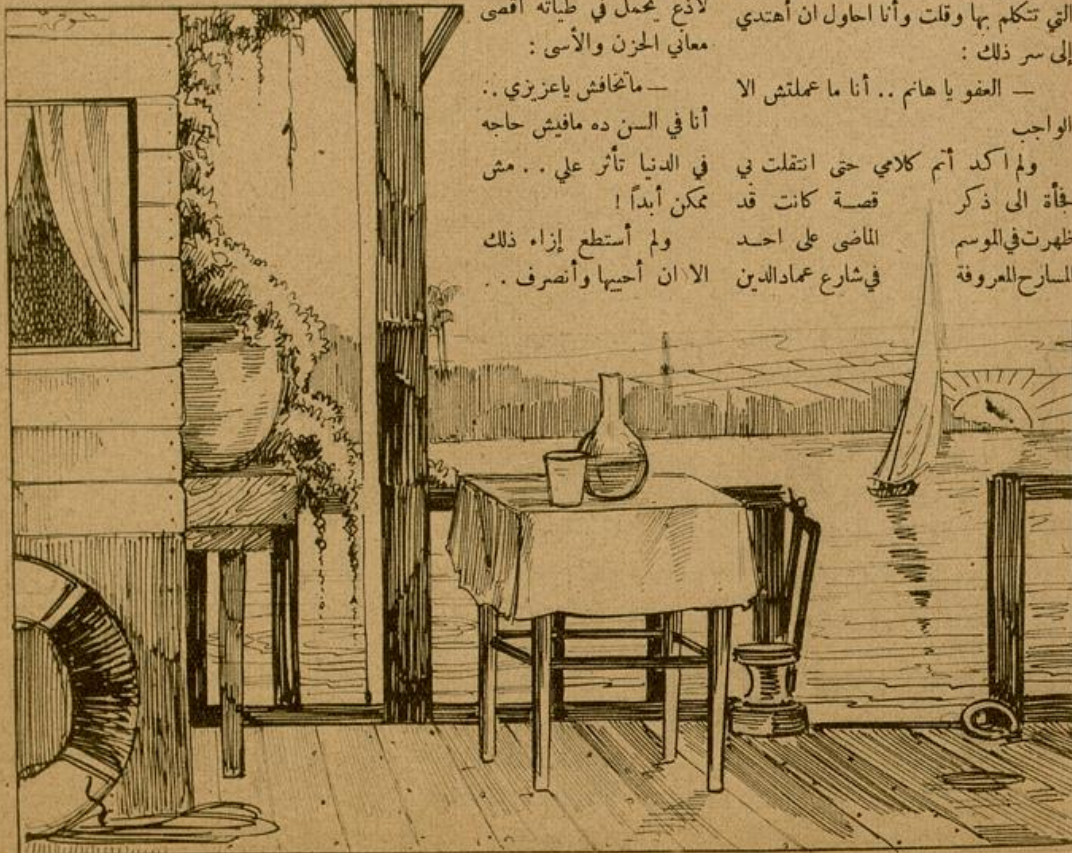 التي تتكلم بها وقلت وأنا احاول ان أهتدي
إلى سر ذلك :
— العفو يا هانم .. أنا ما عملتش الا
الواجب
ولم اكد أتم كلامي حتى انتقلت بي
فجأة الى ذكر قصة كانت قد
ظهرت في الموسم الماضى على احد
المسارح المعروفة في شارع عماد الدين
لاذع يحمل في طياته أقصى
معاني الحزن والأسى :
— ماتخافش ياعزيزي ..
أنا في السن ده مافيش حاجه
في الدنيا تأثر علي .. مش
ممكن أبداً !
ولم أستطع إزاء ذلك
الا ان أحييها وأنصرف . .